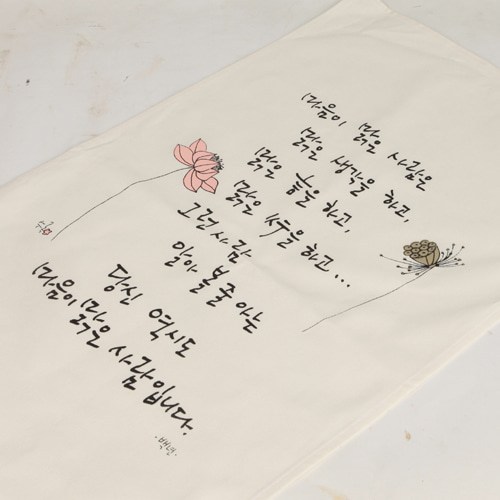 마음이 맑은 사람은
맑은 생각을 하고,
맑은 눈을 하고,
맑은 수를 하고...
그런 사람
알아 볼 줄 아는
당신 역시도
마음이 맑은 사람입니다.